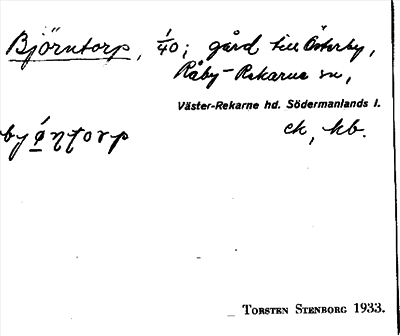 Björntorp, 1/40; gård till Österby,
Råby-Rekarne sn,
Väster-Rekarne hd. Södermanlands l.
ek, hb.
Torsten Stenborg 1933.